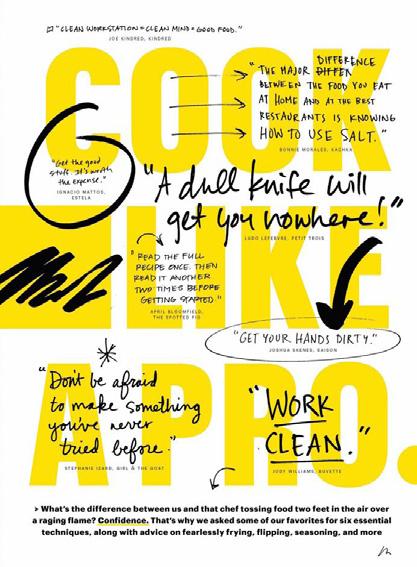 "CLEAN WORKSTATION = CLEAN MIND = GOOD FOOD."
JOE KINDRED, KINDRED
COOK
LIKE
A PRO.
"THE MAJOR DIFFERENCE
BETWEEN THE FOOD YOU EAT
AT HOME AND AT THE BEST
RESTAURANTS IS KNOWING
HOW TO USE SALT."
BONNIE MORALES, KACHKA
"Get the good
stuff. It's worth
the expense."
IGNACIO MATTOS,
ESTELA
"A dull knife will
get you nowhere!"
LUDO LEFEBVRE, PETIT TROIS
"READ THE FULL
RECIPE ONCE. THEN
READ IT ANOTHER
TWO TIMES BEFORE
GETTING STARTED."
APRIL BLOOMFIELD,
THE SPOTTED PIG
"GET YOUR HANDS DIRTY."
JOSHUA SKENES, SAISON
"Don't be afraid
to make something
you've never
tried before."
STEPHANIE IZARD, GIRL & THE GOAT
"WORK
CLEAN."
JODY WILLIAMS, BUVETTE
> What's the difference between us and that chef tossing food two feet in the air over
a raging flame? Confidence. That's why we asked some of our favorites for six essential
techniques, along with advice on fearlessly frying, flipping, seasoning, and more